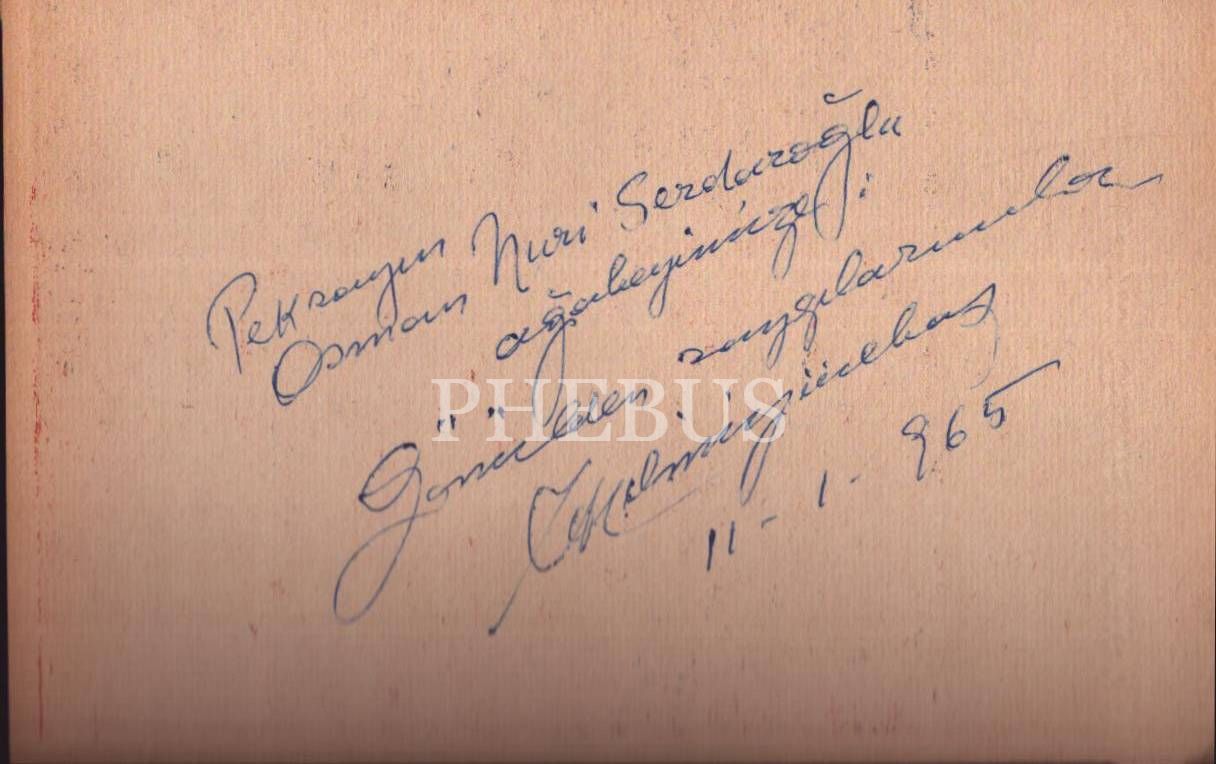 Pek sayın
Osman Nuri Serdaroğlu
ağabeyimize:
Gönülden saygılarımla
11-1-965
PHEBUS